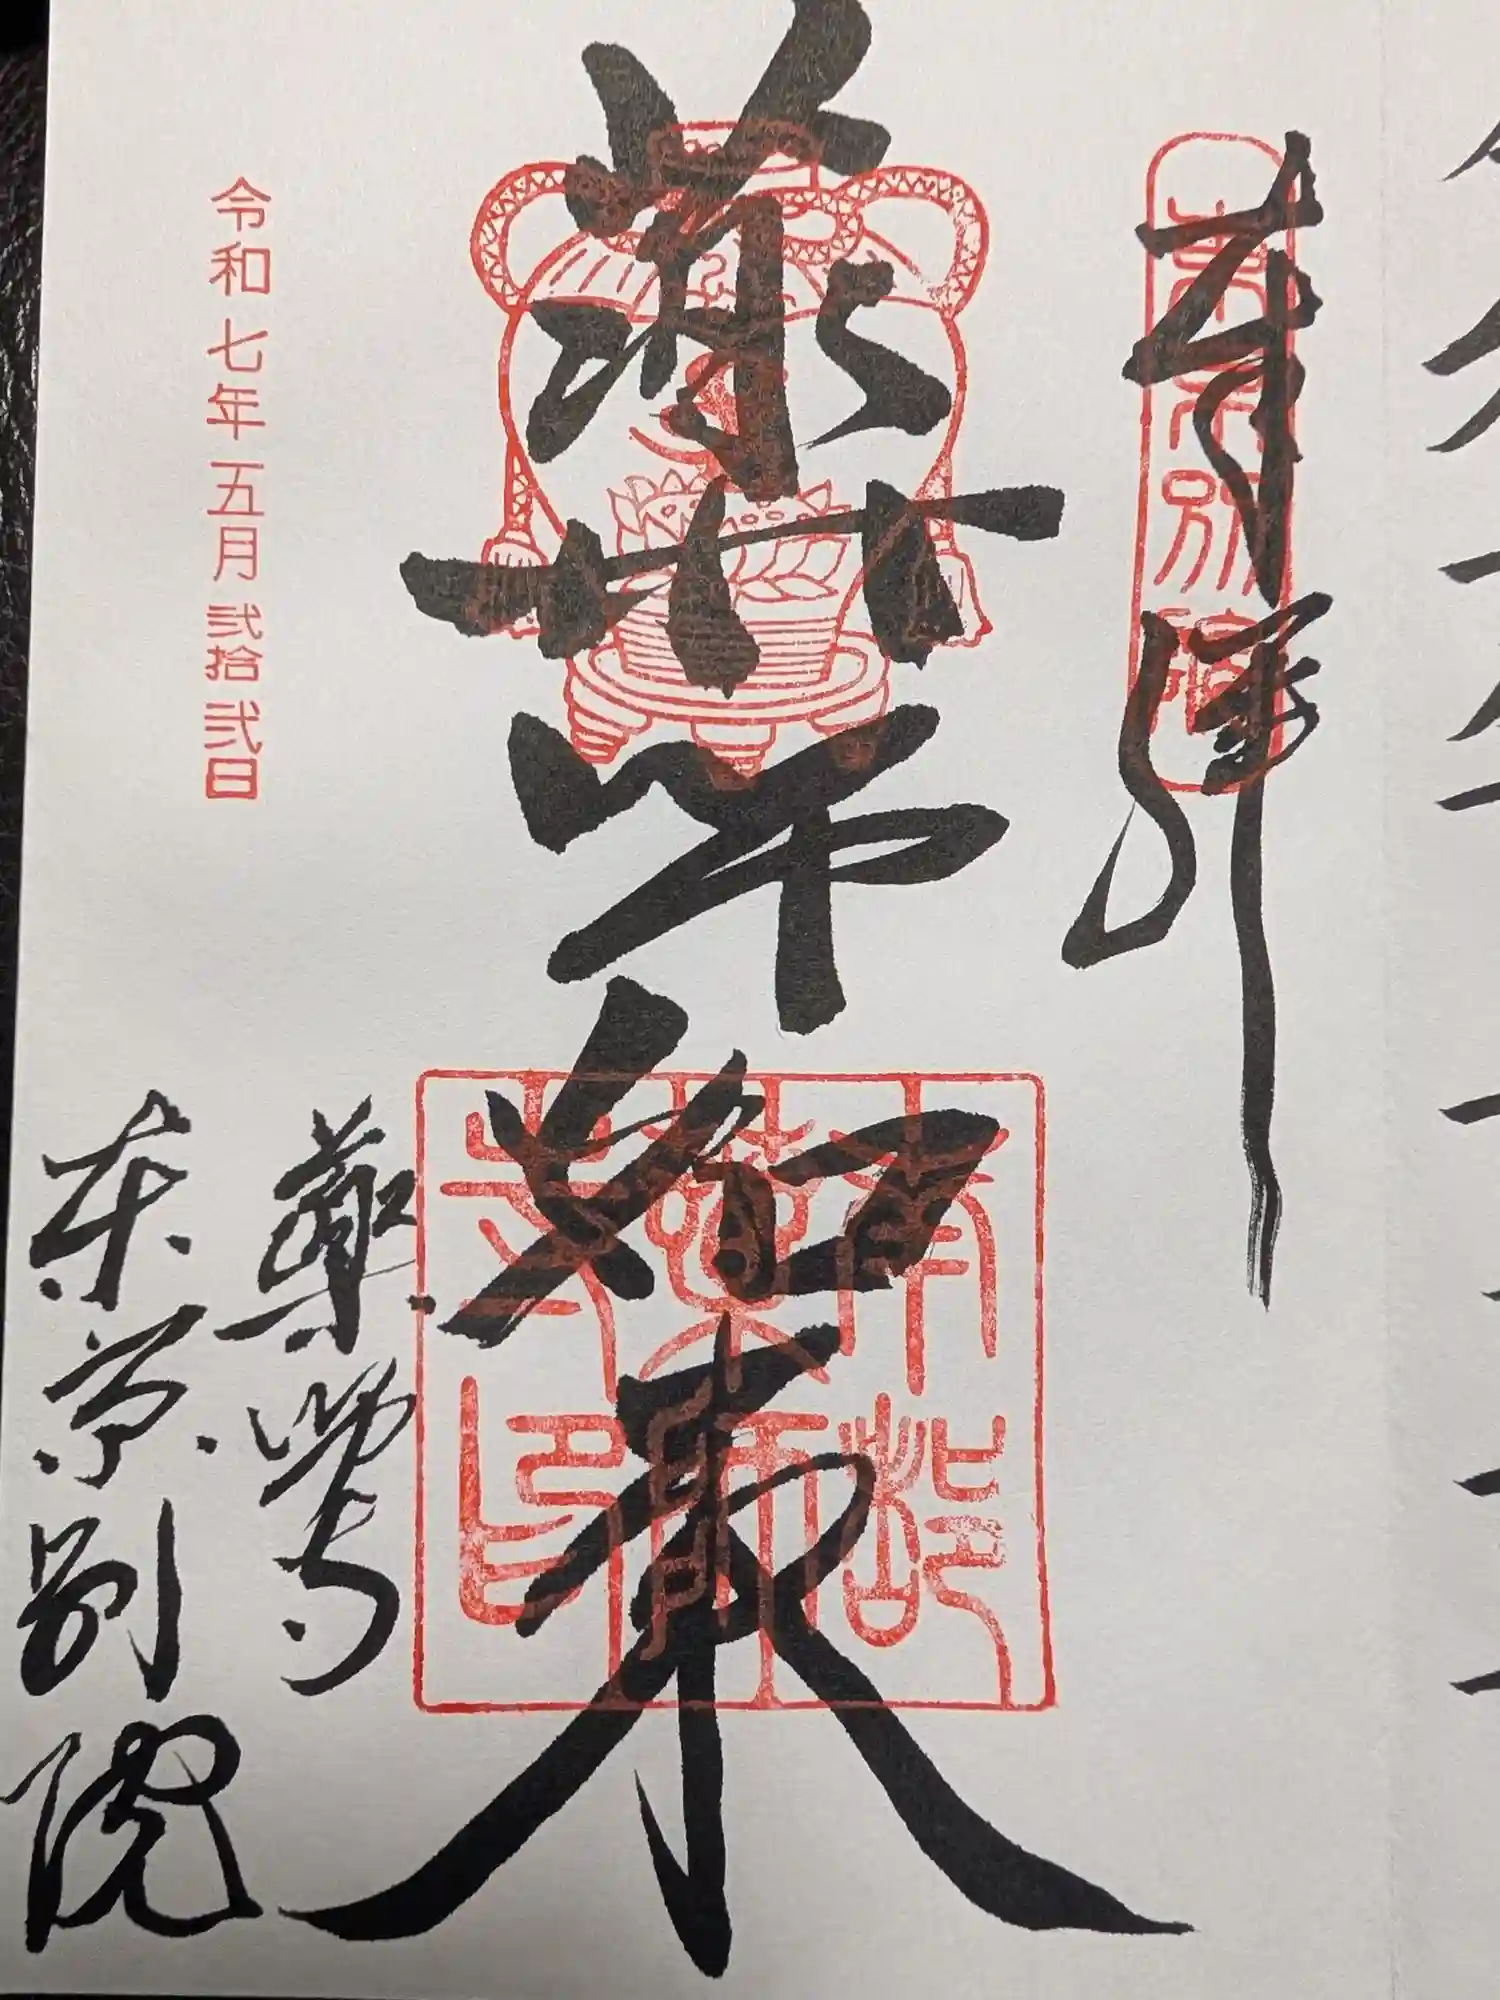 奉拝
東京別院
薬師如来
南都
薬師
寺印
令和七年五月弐拾弐日
薬師寺
東京別院